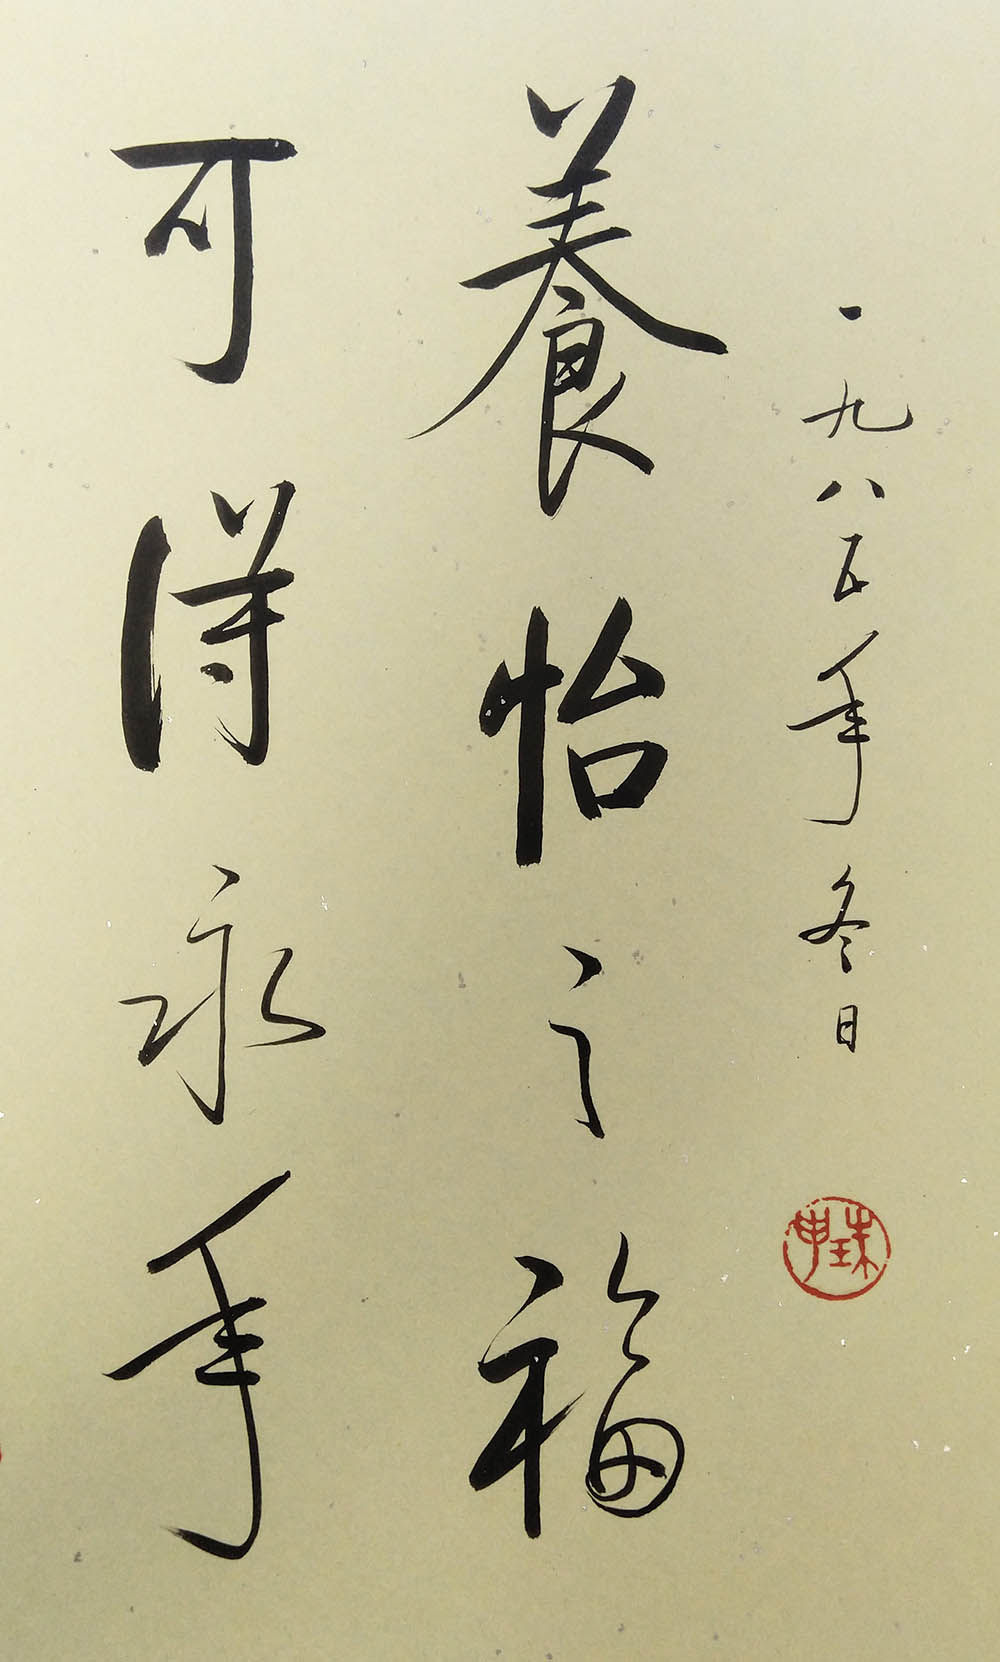 一九八五年冬日
珠申
養怡之福
可得永年